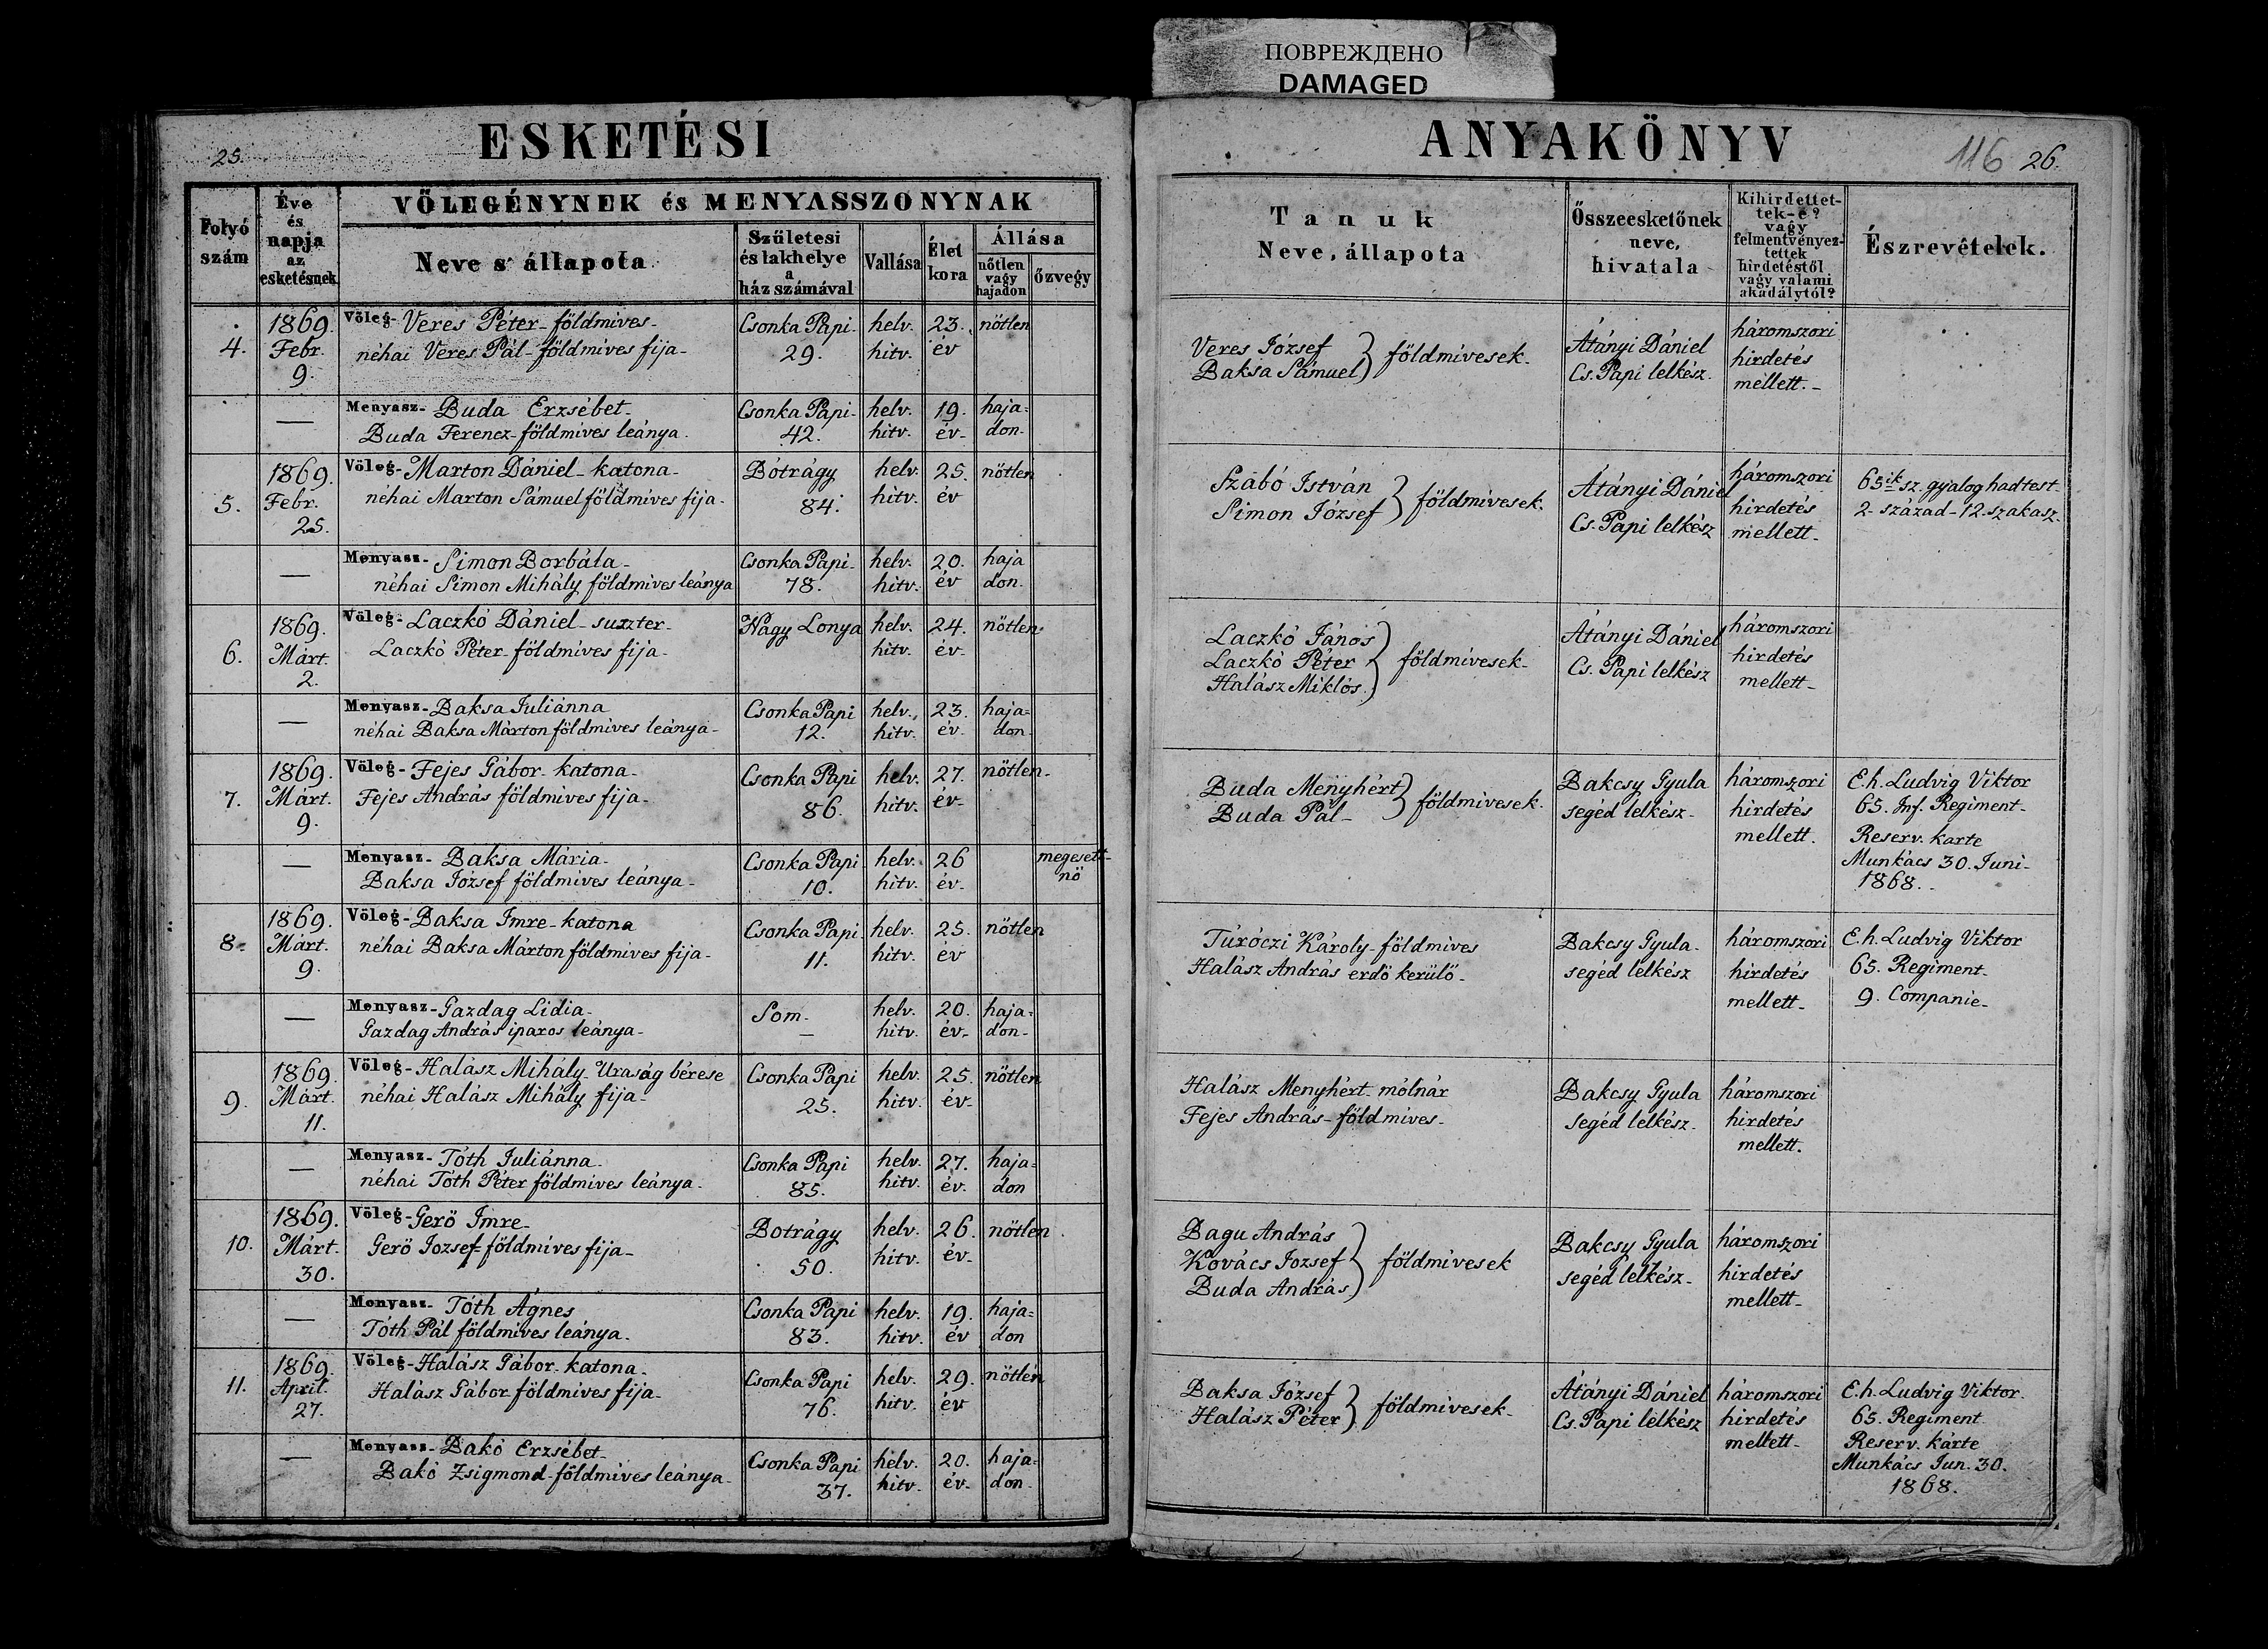 ПОВРЕЖДЕНО
DAMAGED
25.
ESKETÉSI
ANYAKÖNYV
116 26.
Folyó szám
Éve és napja az esketésnek
VŐLEGÉNYNEK és MENYASSZONYNAK
Neve s állapota
Születesi és lakhelye a ház számával
Vallása
Élet kora
Állása
nőtlen vagy hajadon
őzvegy
Tanuk
Neve, állapota
Összeesketőnek neve, hivatala
Kihirdettet-tek-e? vagy felmentvényez-tettek hirdetéstől vagy valami akadálytól?
Észrevételek.
4.
1869. Febr. 9.
Vőleg- Veres Péter - földmives -
néhai Veres Pál - földmives fija -
Csonka Papi - 29.
helv. hitv.
23. év
nőtlen
Veres József
Baksa Sámuel } földmivesek -
Átányi Dániel
Cs. Papi lelkész.
háromszori hirdetés mellett. -
—
Menyasz- Buda Erzsébet -
Buda Ferencz - földmives leánya.
Csonka Papi - 42.
helv. hitv.
19. év -
haja= don -
5.
1869. Febr. 25.
Vőleg- Marton Dániel - katona -
néhai Marton Sámuel földmives fija -
Bótrágy 84.
helv. hitv.
25. év
nőtlen
Szabó István
Simon József } földmivesek.
Átányi Dániel
Cs. Papi lelkész
háromszori hirdetés mellett -
65ik sz. gyalog hadtest -
2 - század - 12. szakasz -
—
Menyasz- Simon Borbála -
néhai Simon Mihály földmives leánya
Csonka Papi - 78.
helv. hitv.
20. év
haja don.
6.
1869. Márt. 2.
Vőleg- Laczkó Dániel - suszter -
Laczkó Péter - földmives fija -
Nagy Lonya
helv. hitv.
24. év -
nőtlen
Laczkó János
Laczkó Péter
Halász Miklós. } földmivesek -
Átányi Dániel
Cs. Papi lelkész
háromszori hirdetés mellett -
—
Menyasz- Baksa Juliánna
néhai Baksa Márton földmives leánya -
Csonka Papi 12.
helv. hitv.
23. év.
haja= don
7.
1869. Márt. 9.
Vőleg- Fejes Gábor - katona -
Fejes András földmives fija -
Csonka Papi 86.
helv. hitv.
27. év -
nőtlen -
Buda Menyhért
Buda Pál - } földmivesek.
Bakcsy Gyula
segéd lelkész -
háromszori hirdetés mellett.
E. h. Ludvig Viktor
65. Inf. Regiment -
Reserv. karte
Munkács 30. Juni -
1868. -
—
Menyasz- Baksa Mária -
Baksa József földmives leánya -
Csonka Papi 10.
helv. hitv.
26 év -
megesett - nő
8.
1869. Márt. 9.
Vőleg- Baksa Imre - katona
néhai Baksa Márton földmives fija -
Csonka Papi 11.
helv. hitv.
25. év
nőtlen
Túróczi Károly - földmives
Halász András erdő kerülő -
Bakcsy Gyula -
segéd lelkész
háromszori hirdetés mellett -
E. h. Ludvig Viktor
65. Regiment -
9. Companie -
—
Menyasz- Gazdag Lidia -
Gazdag András iparos leánya -
Som. —
helv. hitv.
20. év -
haja= don -
9.
1869. Márt. 11.
Vőleg- Halász Mihály - Uraság bérese
néhai Halász Mihály fija -
Csonka Papi 25.
helv. hitv.
25. év -
nőtlen
Halász Menyhért - mólnár
Fejes András - földmives -
Bakcsy Gyula
segéd lelkész -
háromszori hirdetés mellett.
—
Menyasz- Tóth Juliánna -
néhai Tóth Péter földmives leánya -
Csonka Papi 85.
helv. hitv.
27. év.
haja= don
10.
1869. Márt. 30.
Vőleg- Gerő Imre -
Gerő Jozsef földmives fija -
Botrágy 50.
helv. hitv.
26. év -
nőtlen
Bagu András
Kovács Jozsef
Buda András. } földmivesek
Bakcsy Gyula
segéd lelkész -
háromszori hirdetés mellett -
—
Menyasz- Tóth Ágnes
Tóth Pál földmives leánya -
Csonka Papi 83.
helv. hitv.
19. év
haja= don
11.
1869. April. 27.
Vőleg- Halász Gábor - katona -
Halász Gábor földmives fija -
Csonka Papi 76.
helv. hitv.
29. év
nőtlen
Baksa József
Halász Péter } földmivesek -
Átányi Dániel
Cs. Papi lelkész
háromszori hirdetés mellett -
E. h. Ludvig Viktor.
65. Regiment
Reserv. kárte
Munkács Jun. 30.
1868.
—
Menyasz- Bakó Erzsébet -
Bakó Zsigmond - földmives leánya -
Csonka Papi 37.
helv. hitv.
20. év -
haja= don